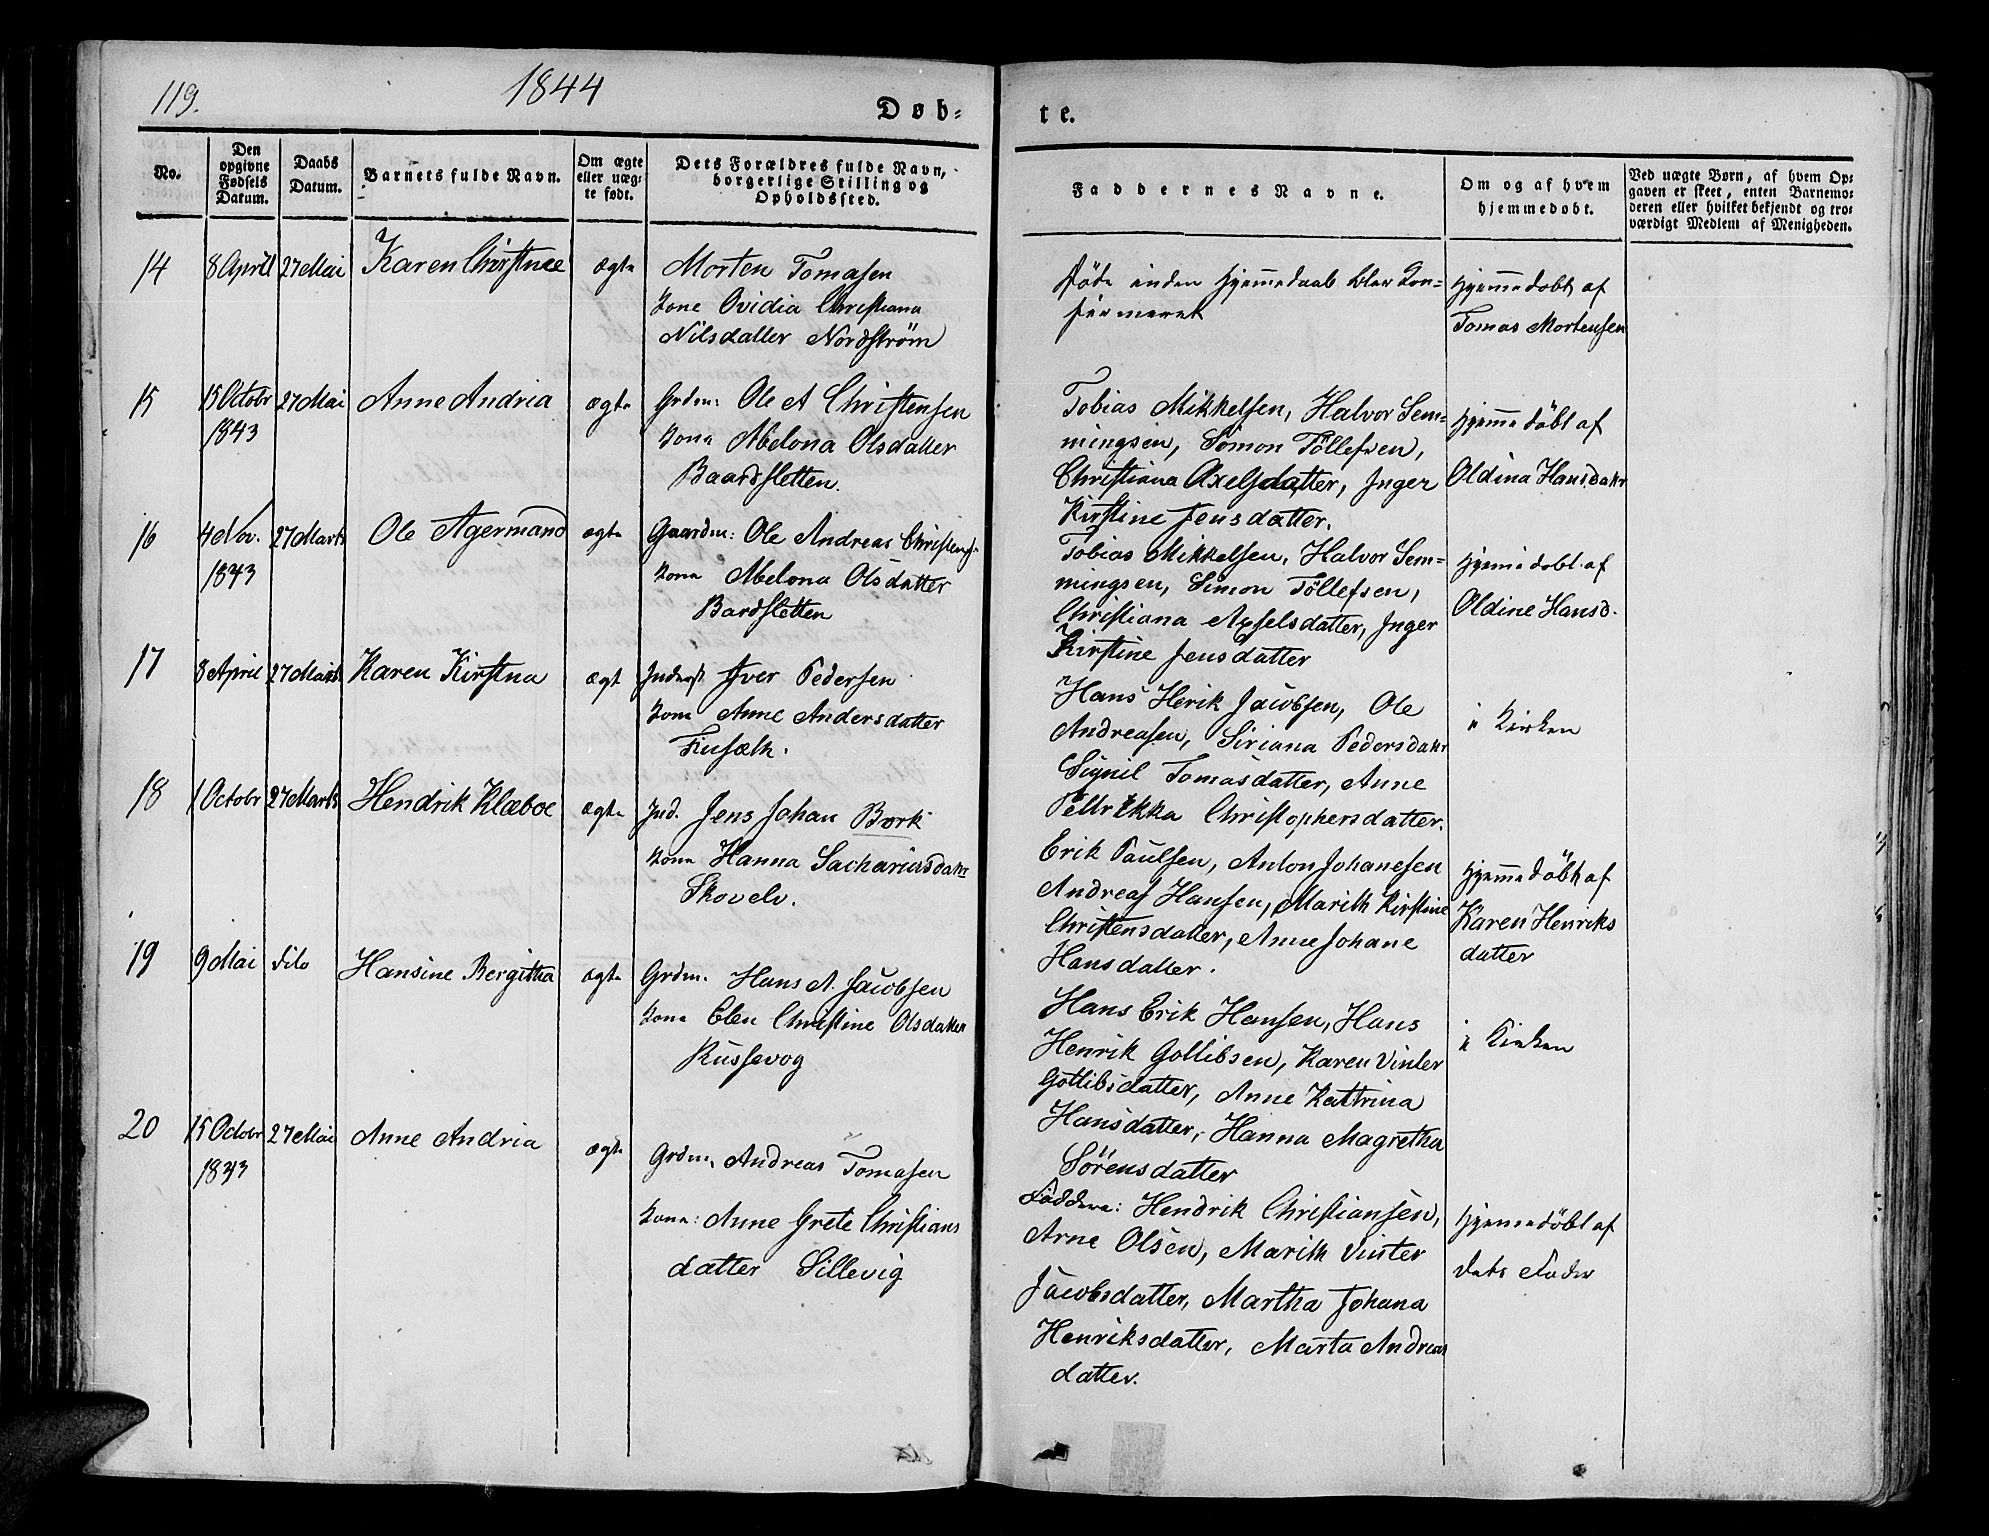 119.
1844
Døb-
te.
No.
Den
opgivne
Fødsels
Datum.
Daabs
Datum.
Barnets fulde Navn.
Om ægte
eller uæg-
te født.
Dets Forældres fulde Navn,
borgerlige Stilling og
Opholdssted.
Faddernes Navne.
Om og af hvem
hjemmedøbt.
Ved uægte Børn, af hvem Op-
gaven er skeet, enten Barnemo-
deren eller hvilket bekjendt og tro-
værdigt Medlem af Menigheden.
14
8 April
27 Mai
Karen Chirstnee
ægte
Morten Tomasen
Kone Ovidia Christiana
Nilsdatter Nordstrøm
Døde inden Hjemmedaab blev Kon=
firmeret
Hjemmedøbt af
Tomas Mortensen
15
15 Octobr
1843
27 Mai
Anne Andria
ægte
Grdm: Ole A Christensen
Kone Abelona Olsdatter
Baardsletten.
Tobias Mikkelsen, Halvor Sem=
mingsen, Simon Tøllefsen,
Christiana Axelsdatter, Inger
Kirstine Jensdatter.
Hjemmedøbt af
Oldina Hansdatr
16
4 Nov.
1843
27 Marts
Ole Agermand
ægte
Gaardm: Ole Andreas Christens.
Kone Abelona Olsdatter
Bardsletten
Tobias Mikkelsen, Halvor Sem=
mingsen, Simon Tøllefsen,
Christiana Axselsdatter, Inger
Kirstine Jensdatter
Hjemmedøbt af
Oldine Hansd.
17
8 April
27 Marts
Karen Kirstna
ægt
Inderst Iver Pedersen
Kone Anne Andersdatter
Finsæth.
Hans Herik Jacobsen, Ole
Andreasen, Siriana Pedersdatr
Signil Tomasdatter, Anne
Pettrikka Christophersdatter.
i Kirken
18
1 Octobr
27 Marts
Hendrik Klæboe
ægte
Ind. Jens Johan Bork
Kone Hanna Sachariasdatr
Skovelv.
Erik Paulsen, Anton Johanesen
Andreas Hansen, Marith Kirstine
Christensdatter, Anne Johane
Hansdatter.
Hjemmedøbt af
Karen Henriks
datter
19
9 Mai
dito
Hansine Bergitha
ægte
Grdm. Hans A. Jacobsen
Kone Elen Christine Olsdatter
Russevog
Hans Erik Hansen, Hans
Henrik Gotlibsen, Karen Vinter
Gotlibsdatter, Anne Kattrina
Hansdatter, Hanna Magretha
Sörensdatter
i Kirken
20
15 Octobr
1843
27 Mai
Anne Andria
ægte
Grdm. Andreas Tomasen
Kone: Anne Grete Christians
datter Sillevig
Faddere: Hendrik Christiansen,
Arne Olsen, Marith Vinter
Jacobsdatter, Martha Johana
Henriksdatter, Marta Andreas
datter.
Hjemmedøbt af
dets Fader